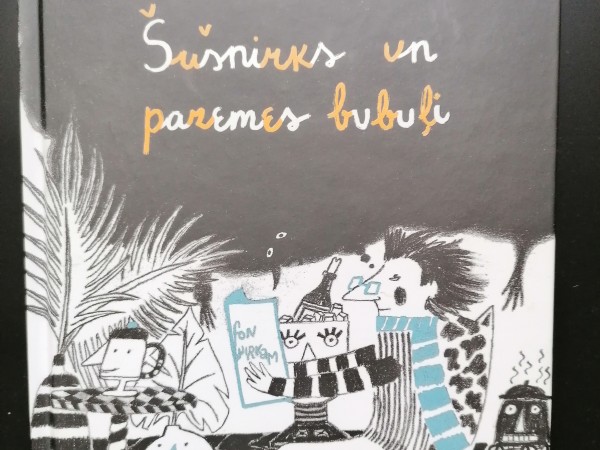 Šušnirks un
pazemes bubuļi
fon
ŅIRKAM